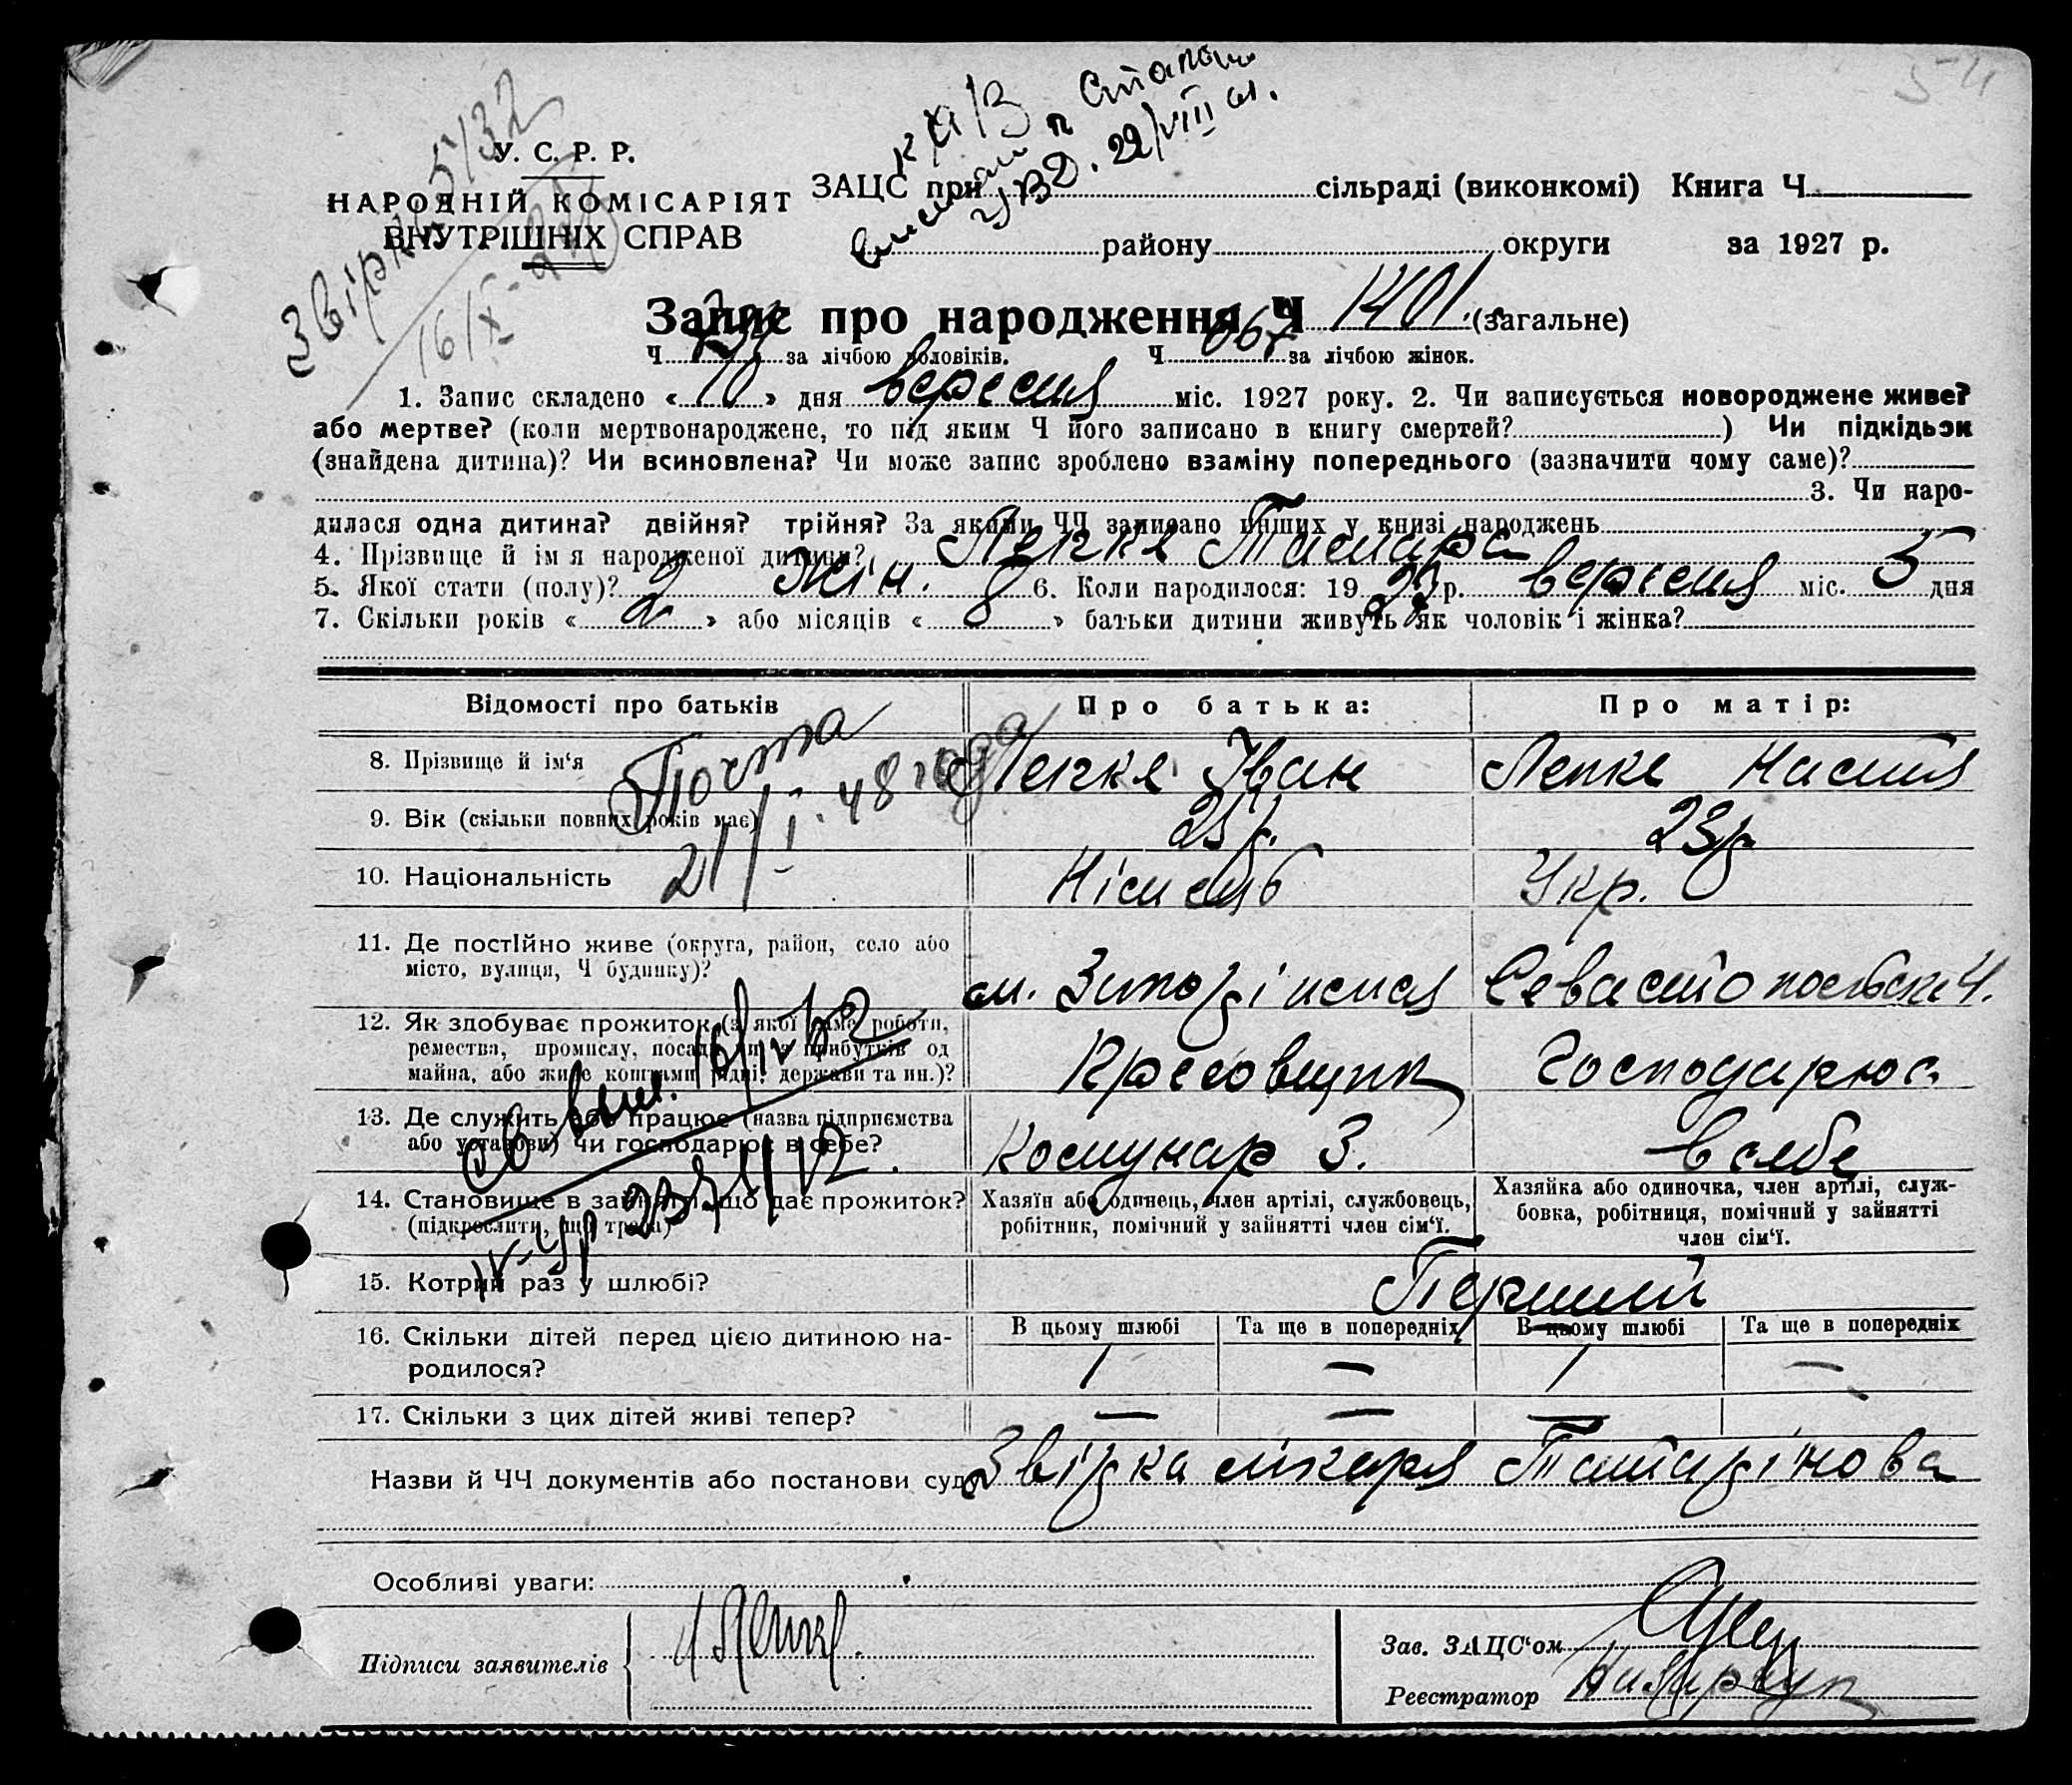 54
Звірка 5/32
16/X
У. С. Р. Р.
НАРОДНІЙ КОМІСАРІЯТ
ВНУТРІШНІХ СПРАВ
22/VIII 41.
ЗАЦС при сільраді (виконкомі) Книга Ч
району округи за 1927 р.
Запис про народження Ч 1401. (загальне)
Ч 734 за лічбою чоловіків. Ч 667 за лічбою жінок.
1. Запис складено « 10 » дня вересня міс. 1927 року. 2. Чи записується новороджене живе?
або мертве? (коли мертвонароджене, то під яким Ч його записано в книгу смертей? ) Чи підкідьок
(знайдена дитина)? Чи всиновлена? Чи може запис зроблено взаміну попереднього (зазначити чому саме)?
3. Чи наро-
дилася одна дитина? двійня? трійня? За якими ЧЧ записано инших у книзі народжень
4. Прізвище й імя народженої дитини? Лепке Тамара
5. Якої стати (полу)? жін. 6. Коли народилося: 19 27 р. вересня міс. 5 дня
7. Скільки років « 2 » або місяців « 8 » батьки дитини живуть як чоловік і жінка?
Відомості про батьків Про батька: Про матір:
8. Прізвище й ім‘я Лепке Іван Лепке Настя
Почта 21/I-48 года
9. Вік (скільки повних років має) 25 р. 23 р.
10. Національність Німець Укр.
11. Де постійно живе (округа, район, село або
місто, вулиця, Ч будинку)? м. Запоріжжя Севастопольська 4.
12. Як здобуває прожиток (з якої саме роботи,
ремества, промислу, посади чи з прибутків од
майна, або живе коштами рідні, держави та ин.)? Господарює
13. Де служить або працює (назва підприємства
або установи) чи господарює в себе? Комунар З. в себе
14. Становище в занятті, що дає прожиток?
(підкреслити, що треба)
Хазяїн або одинець, член артілі, службовець,
робітник, помічний у зайнятті член сім‘ї.
Хазяйка або одиночка, член артілі, служ-
бовка, робітниця, помічний у зайнятті
член сім‘ї.
15. Котрий раз у шлюбі? Перший
16. Скільки дітей перед цією дитиною на-
родилося?
В цьому шлюбі Та ще в попередніх В цьому шлюбі Та ще в попередніх
1 — 1 —
17. Скільки з цих дітей живі тепер? — — —
Назви й ЧЧ документів або постанови суду Звірка лікаря
Особливі уваги:
Підписи заявителів И Лепке.
Зав. ЗАЦС‘ом
Реєстратор